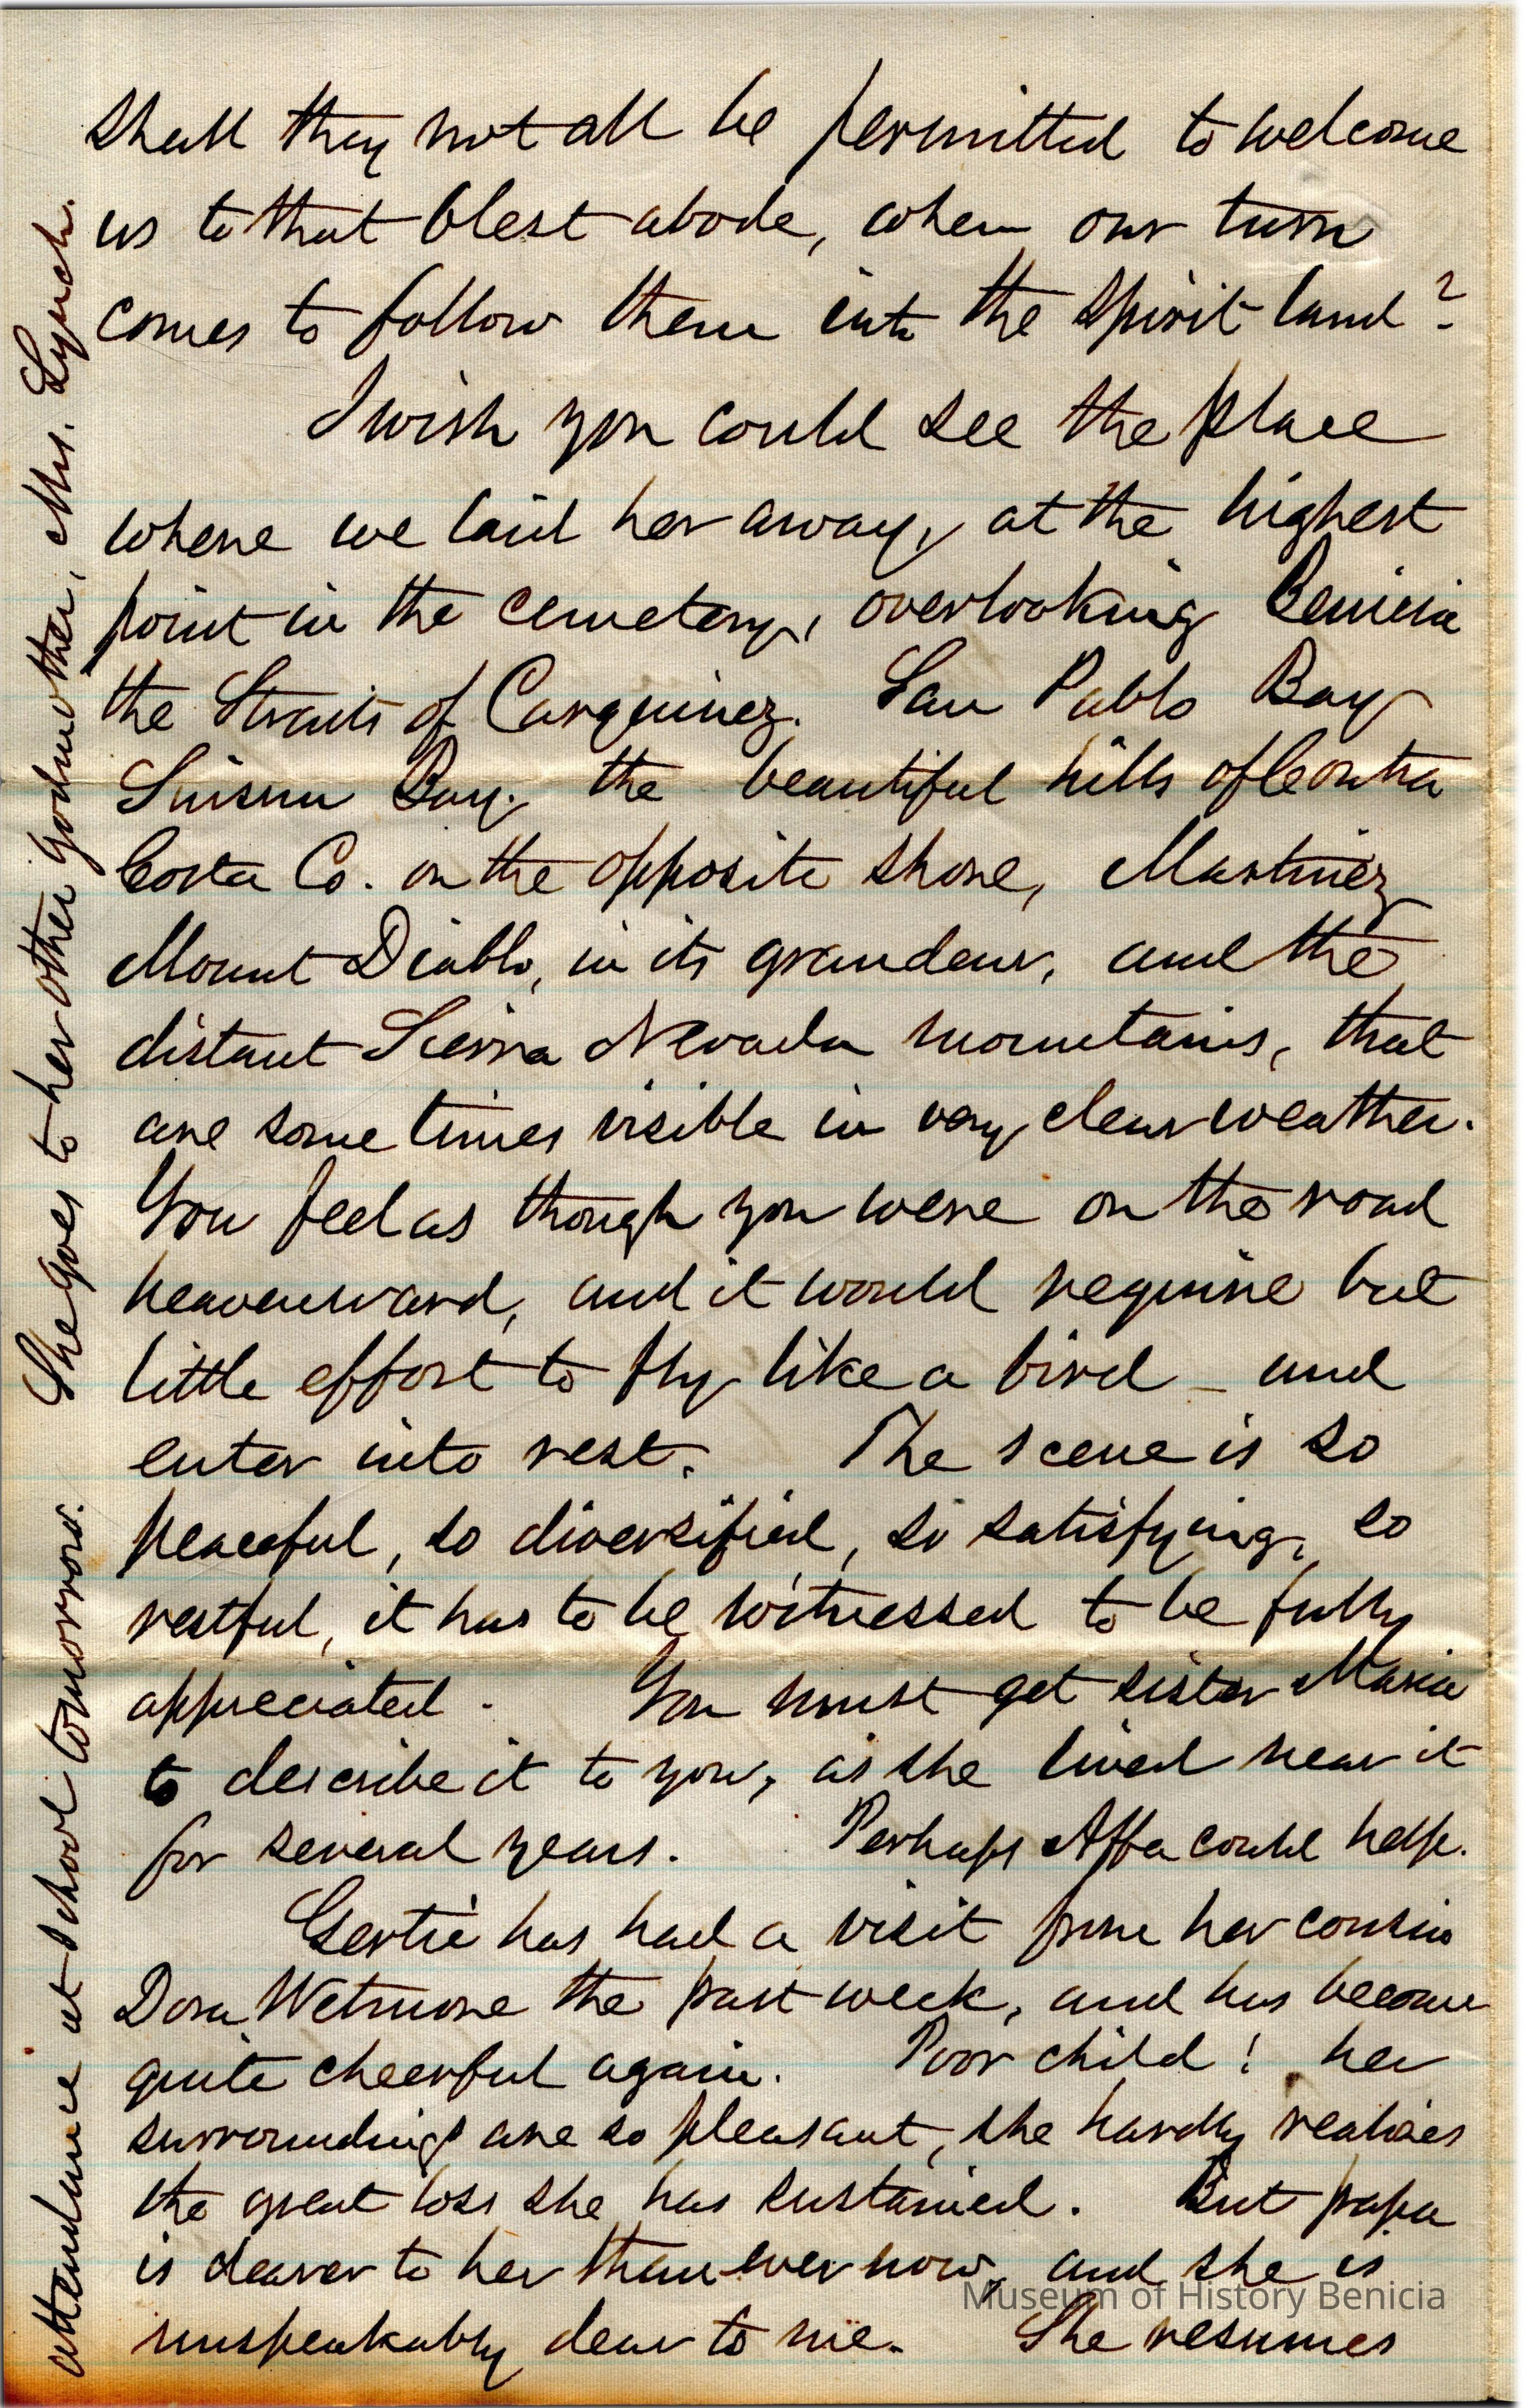 shall they not all be permitted to welcome
us to that blest abode, when our turn
comes to follow them into the spirit land?
I wish you could see the place
where we laid her away, at the highest
point in the cemetery, overlooking Benicia
the Straits of Carquinez. San Pablo Bay
Suisun Bay, the beautiful hills of Contra
Costa Co. on the opposite shore, Martinez
Mount Diablo, in its grandeur, and the
distant Sierra Nevada mountains, that
are some times visible in very clear weather.
You feel as though you were on the road
heavenward, and it would require but
little effort to fly like a bird - and
enter into rest. The scene is so
peaceful, so diversified, so satisfying, so
restful, it has to be witnessed to be fully
appreciated. You must get sister Maria
to describe it to you, as she lived near it
for several years. Perhaps Affa could help.
Gertie has had a visit from her cousin
Dora Wetmore the past week, and has become
quite cheerful again. Poor child! her
surroundings are so pleasant, she hardly realizes
the great loss she has sustained. But papa
is dearer to her than ever now, and she is
unspeakably dear to me. She resumes
attendance at school tomorrow. She goes to her other godmother, Mrs. Lynch.
Museum of History Benicia